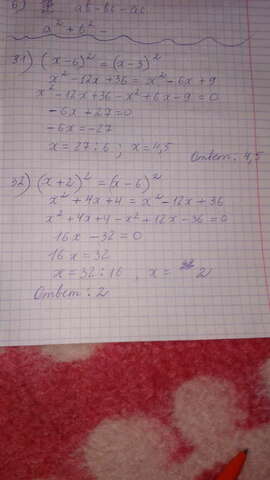 б) ab - bc - ac
a² + b² -
31) (x-6)² = (x-3)²
x² - 12x + 36 = x² - 6x + 9
x² - 12x + 36 - x² + 6x - 9 = 0
-6x + 27 = 0
-6x = -27
x = 27 : 6 ; x = 4,5
Ответ: 4,5
32) (x+2)² = (x-6)²
x² + 4x + 4 = x² - 12x + 36
x² + 4x + 4 - x² + 12x - 36 = 0
16x - 32 = 0
16x = 32
x = 32 : 16 , x = 2
Ответ: 2